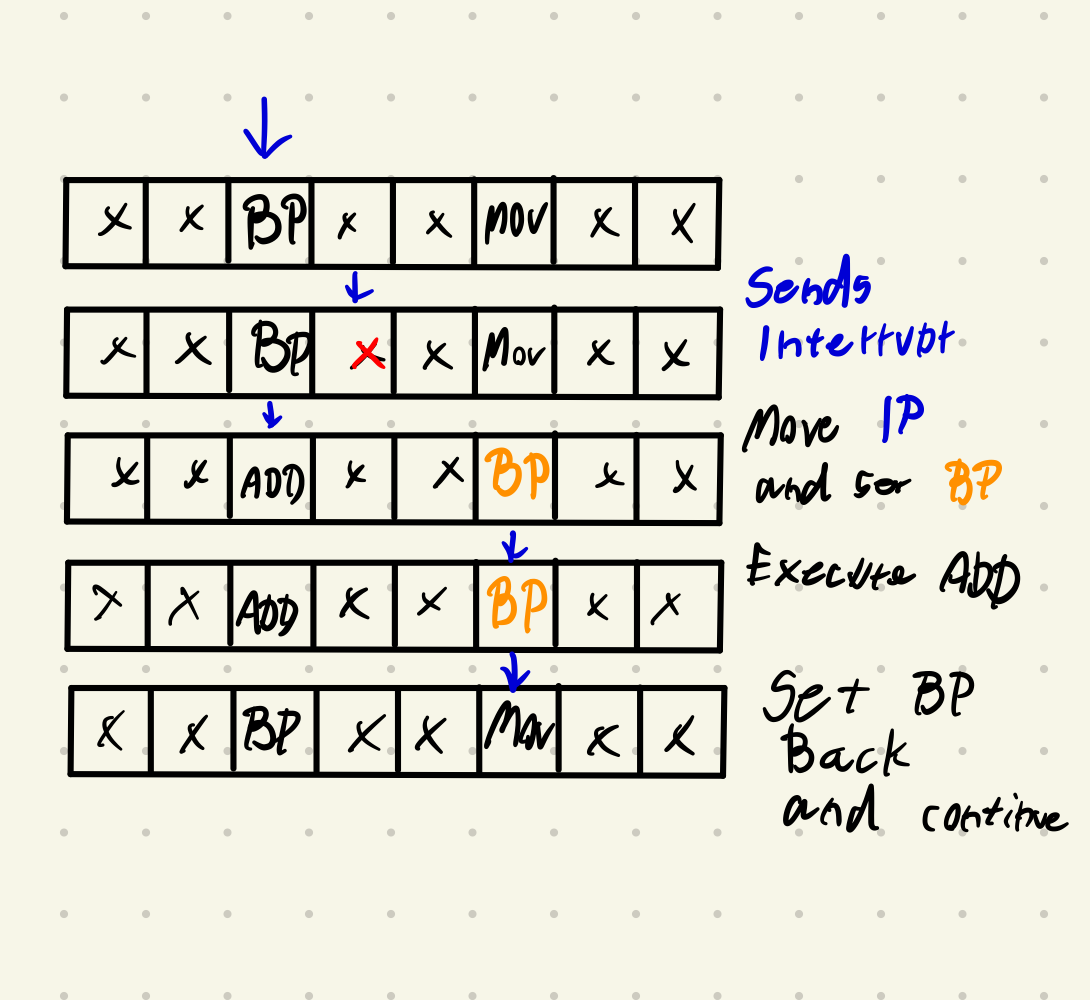 x x BP x x MOV x x
x x BP x x Mov x x
Sends
Interrupt
x x ADD x x BP x x
Move IP
and set BP
x x ADD x x BP x x
Execute ADD
x x BP x x Mov x x
Set BP
Back
and continue